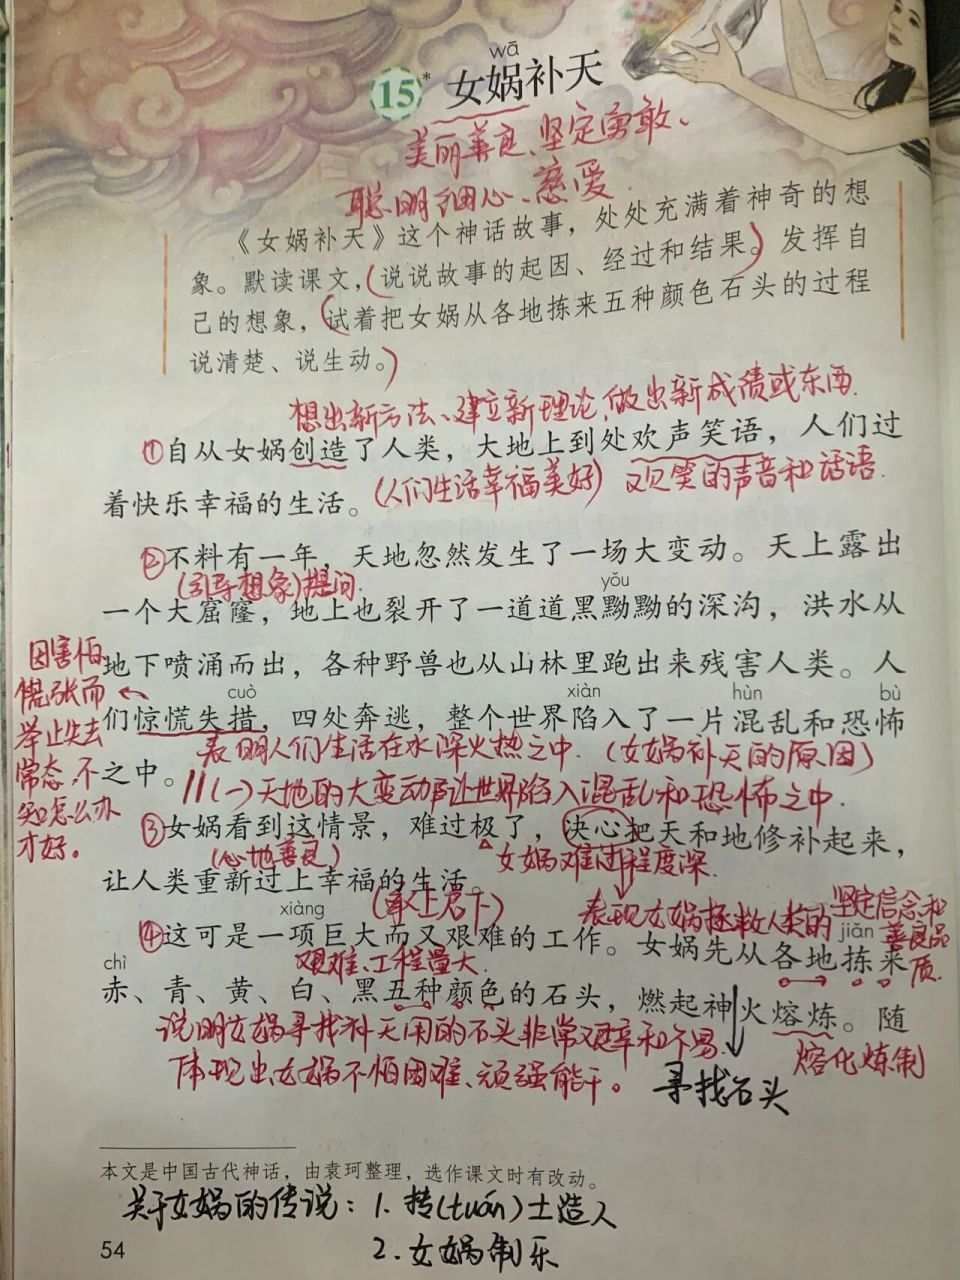 wā
15* 女娲补天
美丽善良、坚定勇敢、
聪明细心、慈爱
《女娲补天》这个神话故事，处处充满着神奇的想
象。默读课文，（说说故事的起因、经过和结果。）发挥自
己的想象，（试着把女娲从各地拣来五种颜色石头的过程
说清楚、说生动。）
想出新方法、建立新理论，做出新成绩或东西.
①自从女娲创造了人类，大地上到处欢声笑语，人们过
着快乐幸福的生活。（人们生活幸福美好）欢笑的声音和话语.
②不料有一年，天地忽然发生了一场大变动。天上露出
（引导想象）提问.
yǒu
一个大窟窿，地上也裂开了一道道黑黝黝的深沟，洪水从
地下喷涌而出，各种野兽也从山林里跑出来残害人类。人
cuò xiàn hùn bù
们惊慌失措，四处奔逃，整个世界陷入了一片混乱和恐怖
因害怕
慌张而
举止失去
常态，不
知怎么办
才好。
表明人们生活在水深火热之中.（女娲补天的原因）
之中。
//（一）天地的大变动后让世界陷入混乱和恐怖之中.
③女娲看到这情景，难过极了，决心把天和地修补起来，
（心地善良） 女娲难过程度深.
让人类重新过上幸福的生活。
（承上启下） 表现女娲拯救人类的坚定信念和
善良品
质.
xiàng jiǎn
④这可是一项巨大而又艰难的工作。女娲先从各地拣来
艰难、工程量大.
chì
赤、青、黄、白、黑五种颜色的石头，燃起神火熔炼。随
说明女娲寻找补天用的石头非常艰辛和不易.
熔化炼制
体现出女娲不怕困难、顽强能干。 寻找石头
本文是中国古代神话，由袁珂整理，选作课文时有改动。
关于女娲的传说：1.抟(tuán)土造人
54
2.女娲制乐